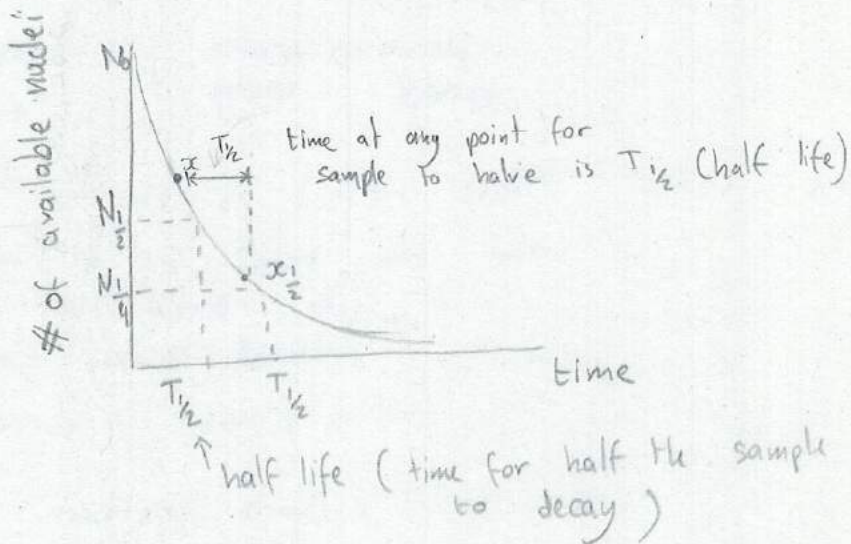 # of available nuclei
N₀
x
T½
time at any point for
sample to halve is T½ (half life)
N½
N¼
x½
time
T½ T½
↑ half life (time for half the sample
to decay)